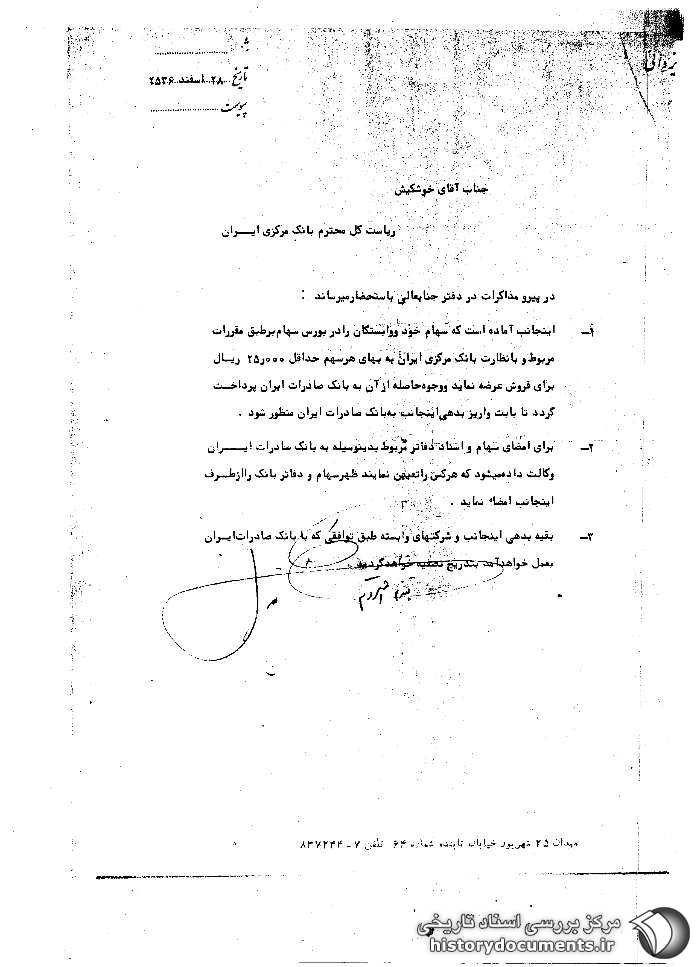 یزدانی
تاریخ ۲۸ اسفند ۲۵۳۶
پیوست
جناب آقای خوشکیش
ریاست کل محترم بانک مرکزی ایـــران
در پیرو مذاکرات در دفتر جنابعالی باستحضار میرساند :
۱ــ اینجانب آماده است که سهام خود و وابستگان را در بورس سهام برطبق مقررات
مربوط و با نظارت بانک مرکزی ایران به بهای هرسهم حداقل ۲۵٫۰۰۰ ریــال
برای فروش عرضه نماید و وجوه حاصله از آن به بانک صادرات ایران پرداخــت
گردد تا بابت واریز بدهی اینجانب به بانک صادرات ایران منظور شود .
۲ــ برای امضای سهام و اسناد دفاتر مربوط بدینوسیله به بانک صادرات ایـــران
وکالت داده میشود که هرکس را تعیین نمایند ظهر سهام و دفاتر بانک را از طــرف
اینجانب امضاء نماید .
۳ــ بقیه بدهی اینجانب و شرکتهای وابسته طبق توافقی که با بانک صادرات ایران
بعمل خواهد آمد بتدریج تصفیه خواهد گردید .
میدان ۲۵ شهریور خیابان تابنده شماره ۶۴ تلفن ۷ــ۸۳۷۲۴۴
مرکز بررسی اسناد تاریخی
historydocuments.ir